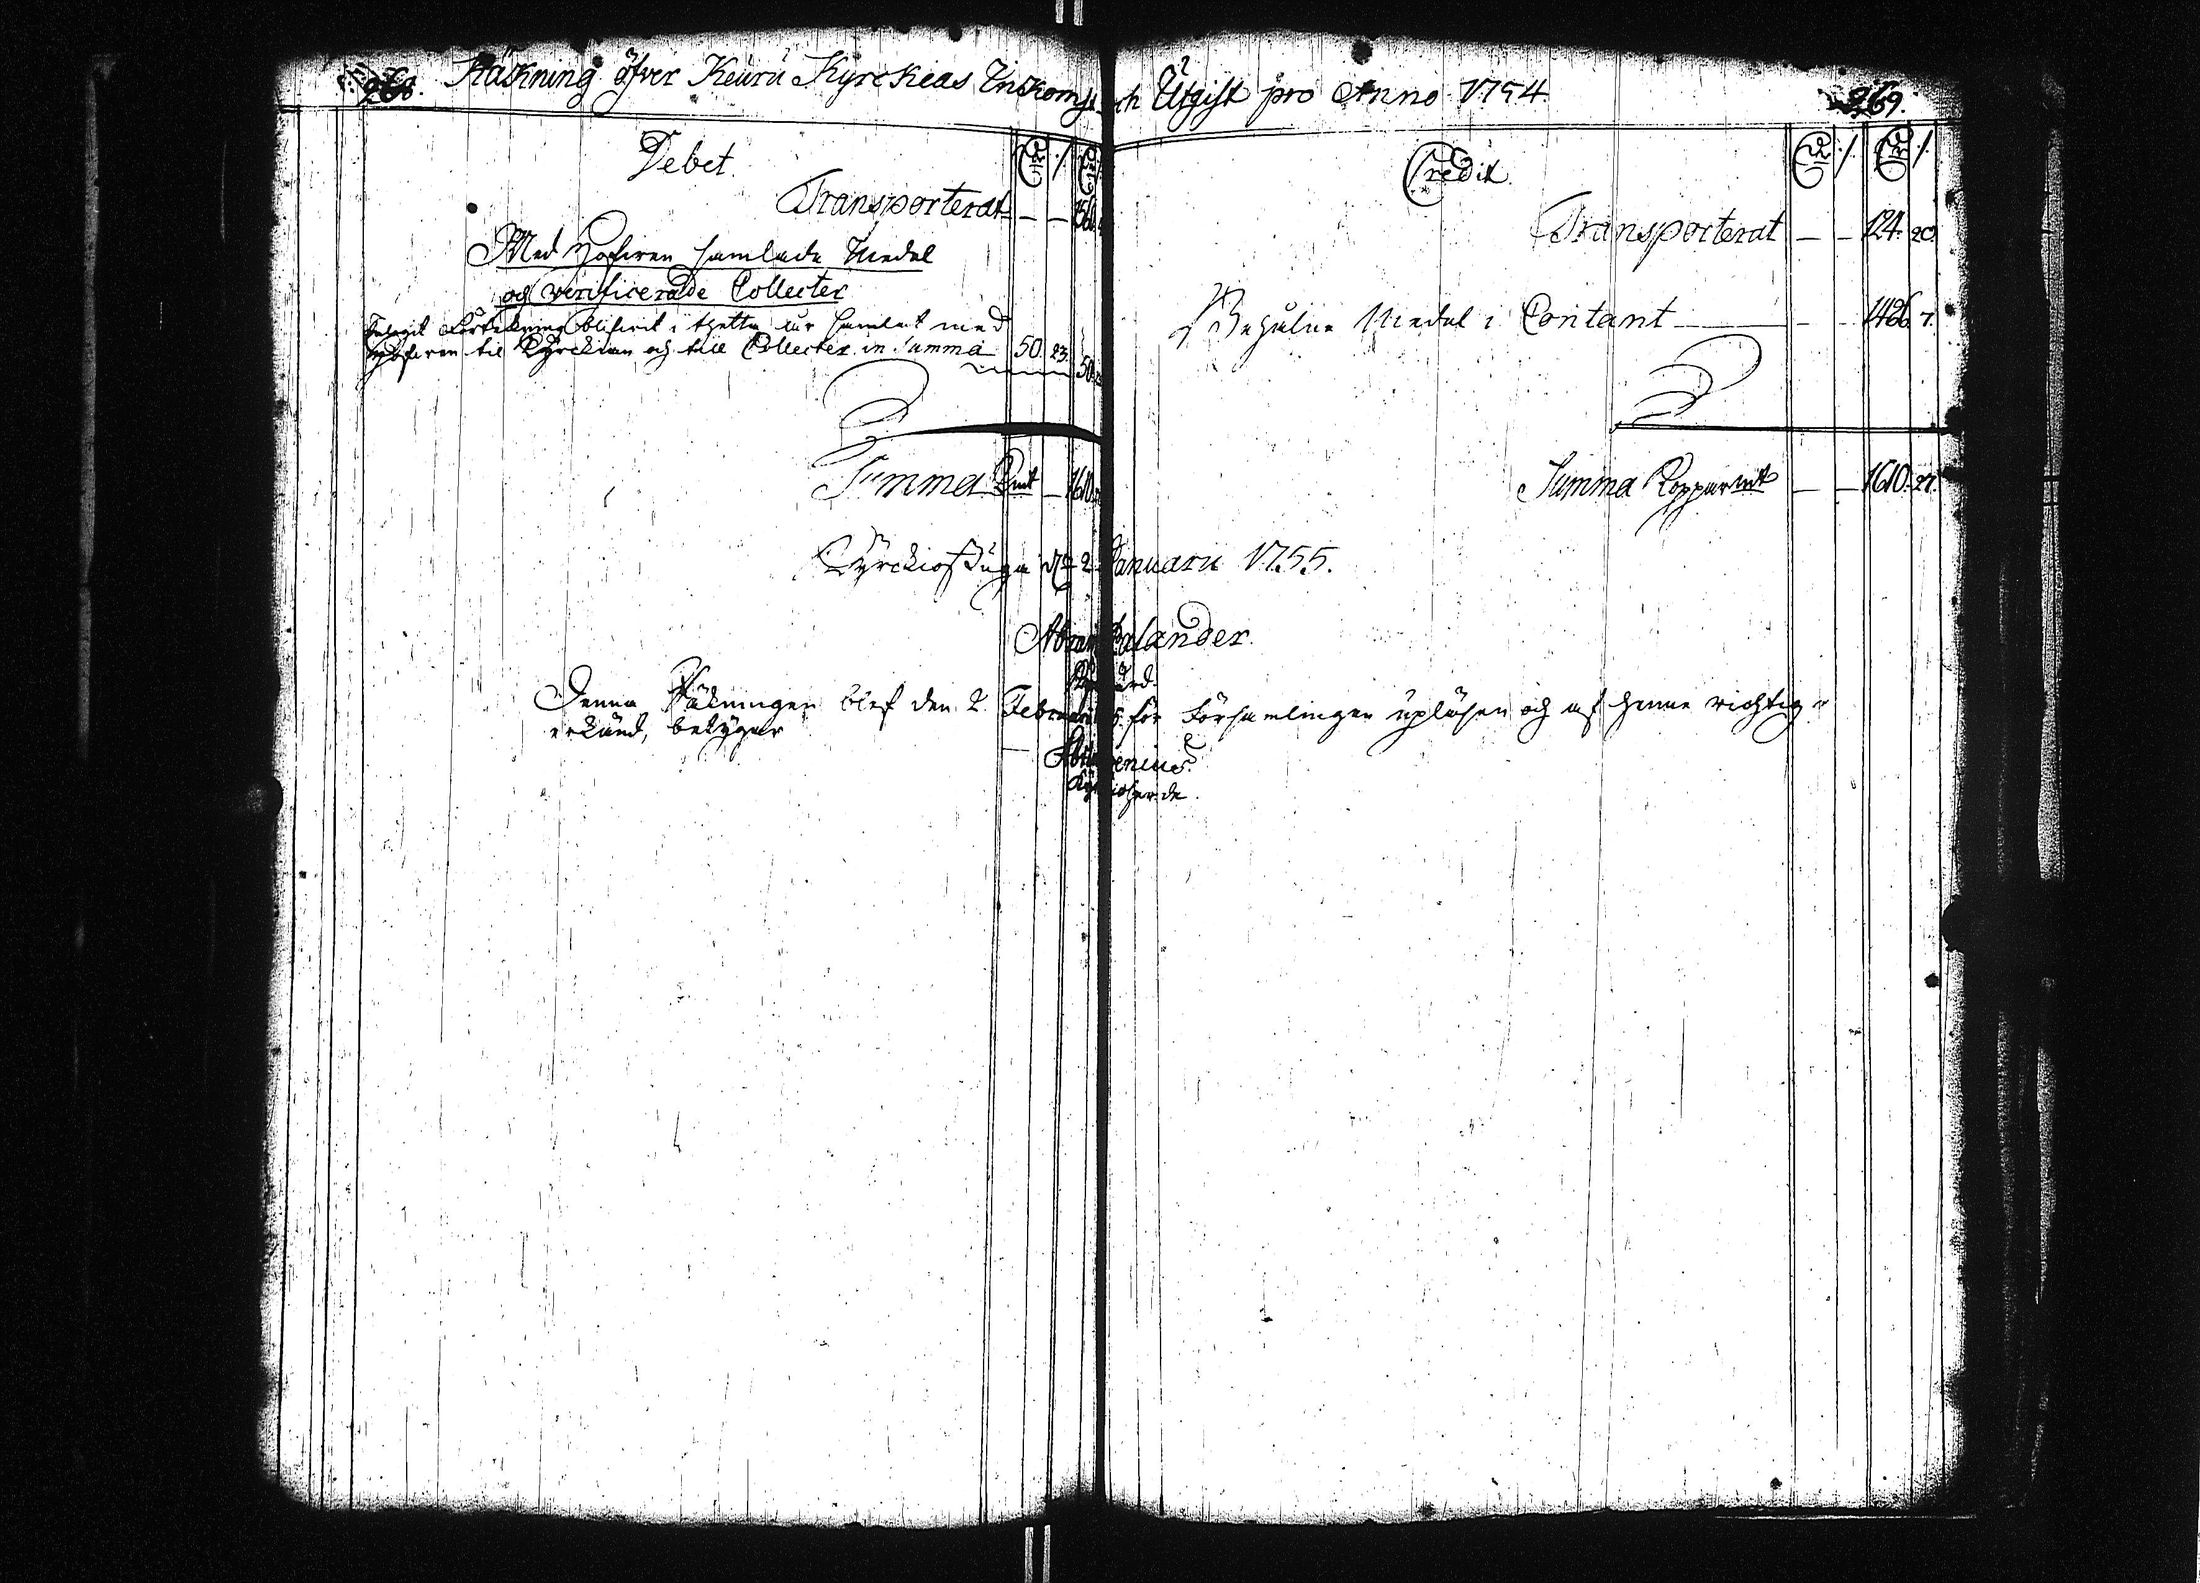 268. Räkning öfver Keuru Kyrckeas Inkomst och Utgift pro Anno 1754. 269.
Debet.
Transporterat — —
Med Hofwen samlade Medel
och verificerade Collecter
Förtekning blifwit i thetta åhr samlat med
Hofwen til Kyrckian och till Collecter in Summa 50. 23.
Summa Kmt — 1610.
Credit.
Transporterat — — 124. 20.
Behålne Medel i Contant — — 1486. 7.
Summa Kopparmt — — 1610. 27.
Kyrckiostuga d. 2 Januarii 1755.
Abra Palander.
Denna Räkningen blef den 2. Februarii för Församlingen upläsen och af henne richtig
erkänd, betygar
Kyrckioherde.